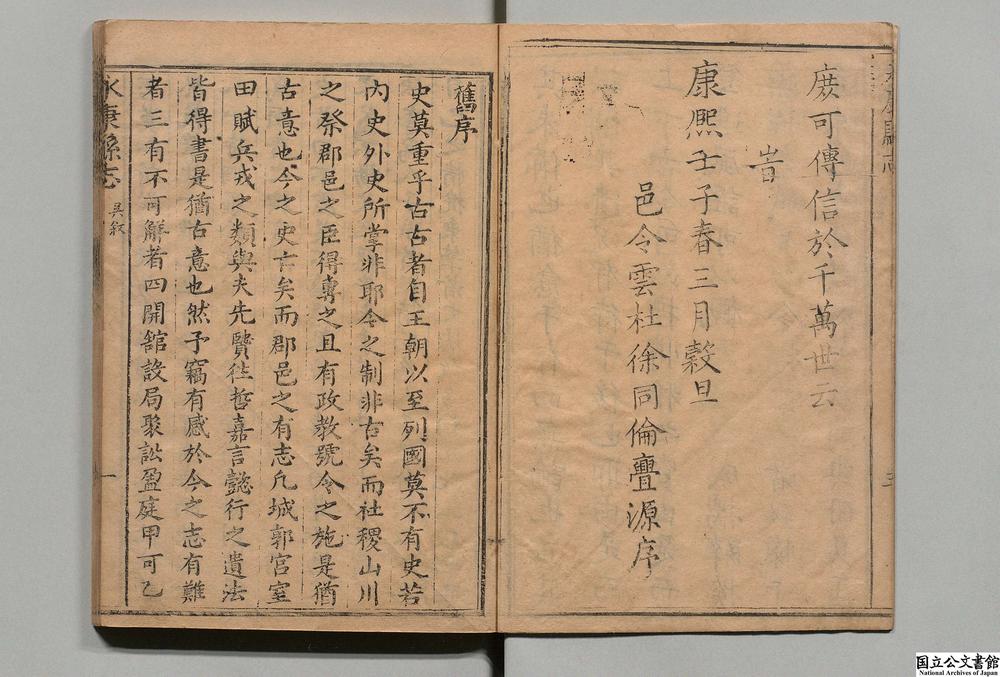 庶可傳信於千萬世云
旹
康熙壬子春三月穀旦
邑令雲杜徐同倫亹源序
三
舊序
史莫重乎古古者自王朝以至列國莫不有史若
內史外史所掌非耶今之制非古矣而社稷山川
之祭郡邑之臣得專之且有政教號令之施是猶
古意也今之史亡矣而郡邑之有志凡城郭宮室
田賦兵戎之類與夫先賢往哲嘉言懿行之遺法
皆得書是猶古意也然予竊有感於今之志有難
者三有不可觧者四開舘設局聚訟盈庭甲可乙
永康縣志
吳敘
一
国立公文書館
National Archives of Japan